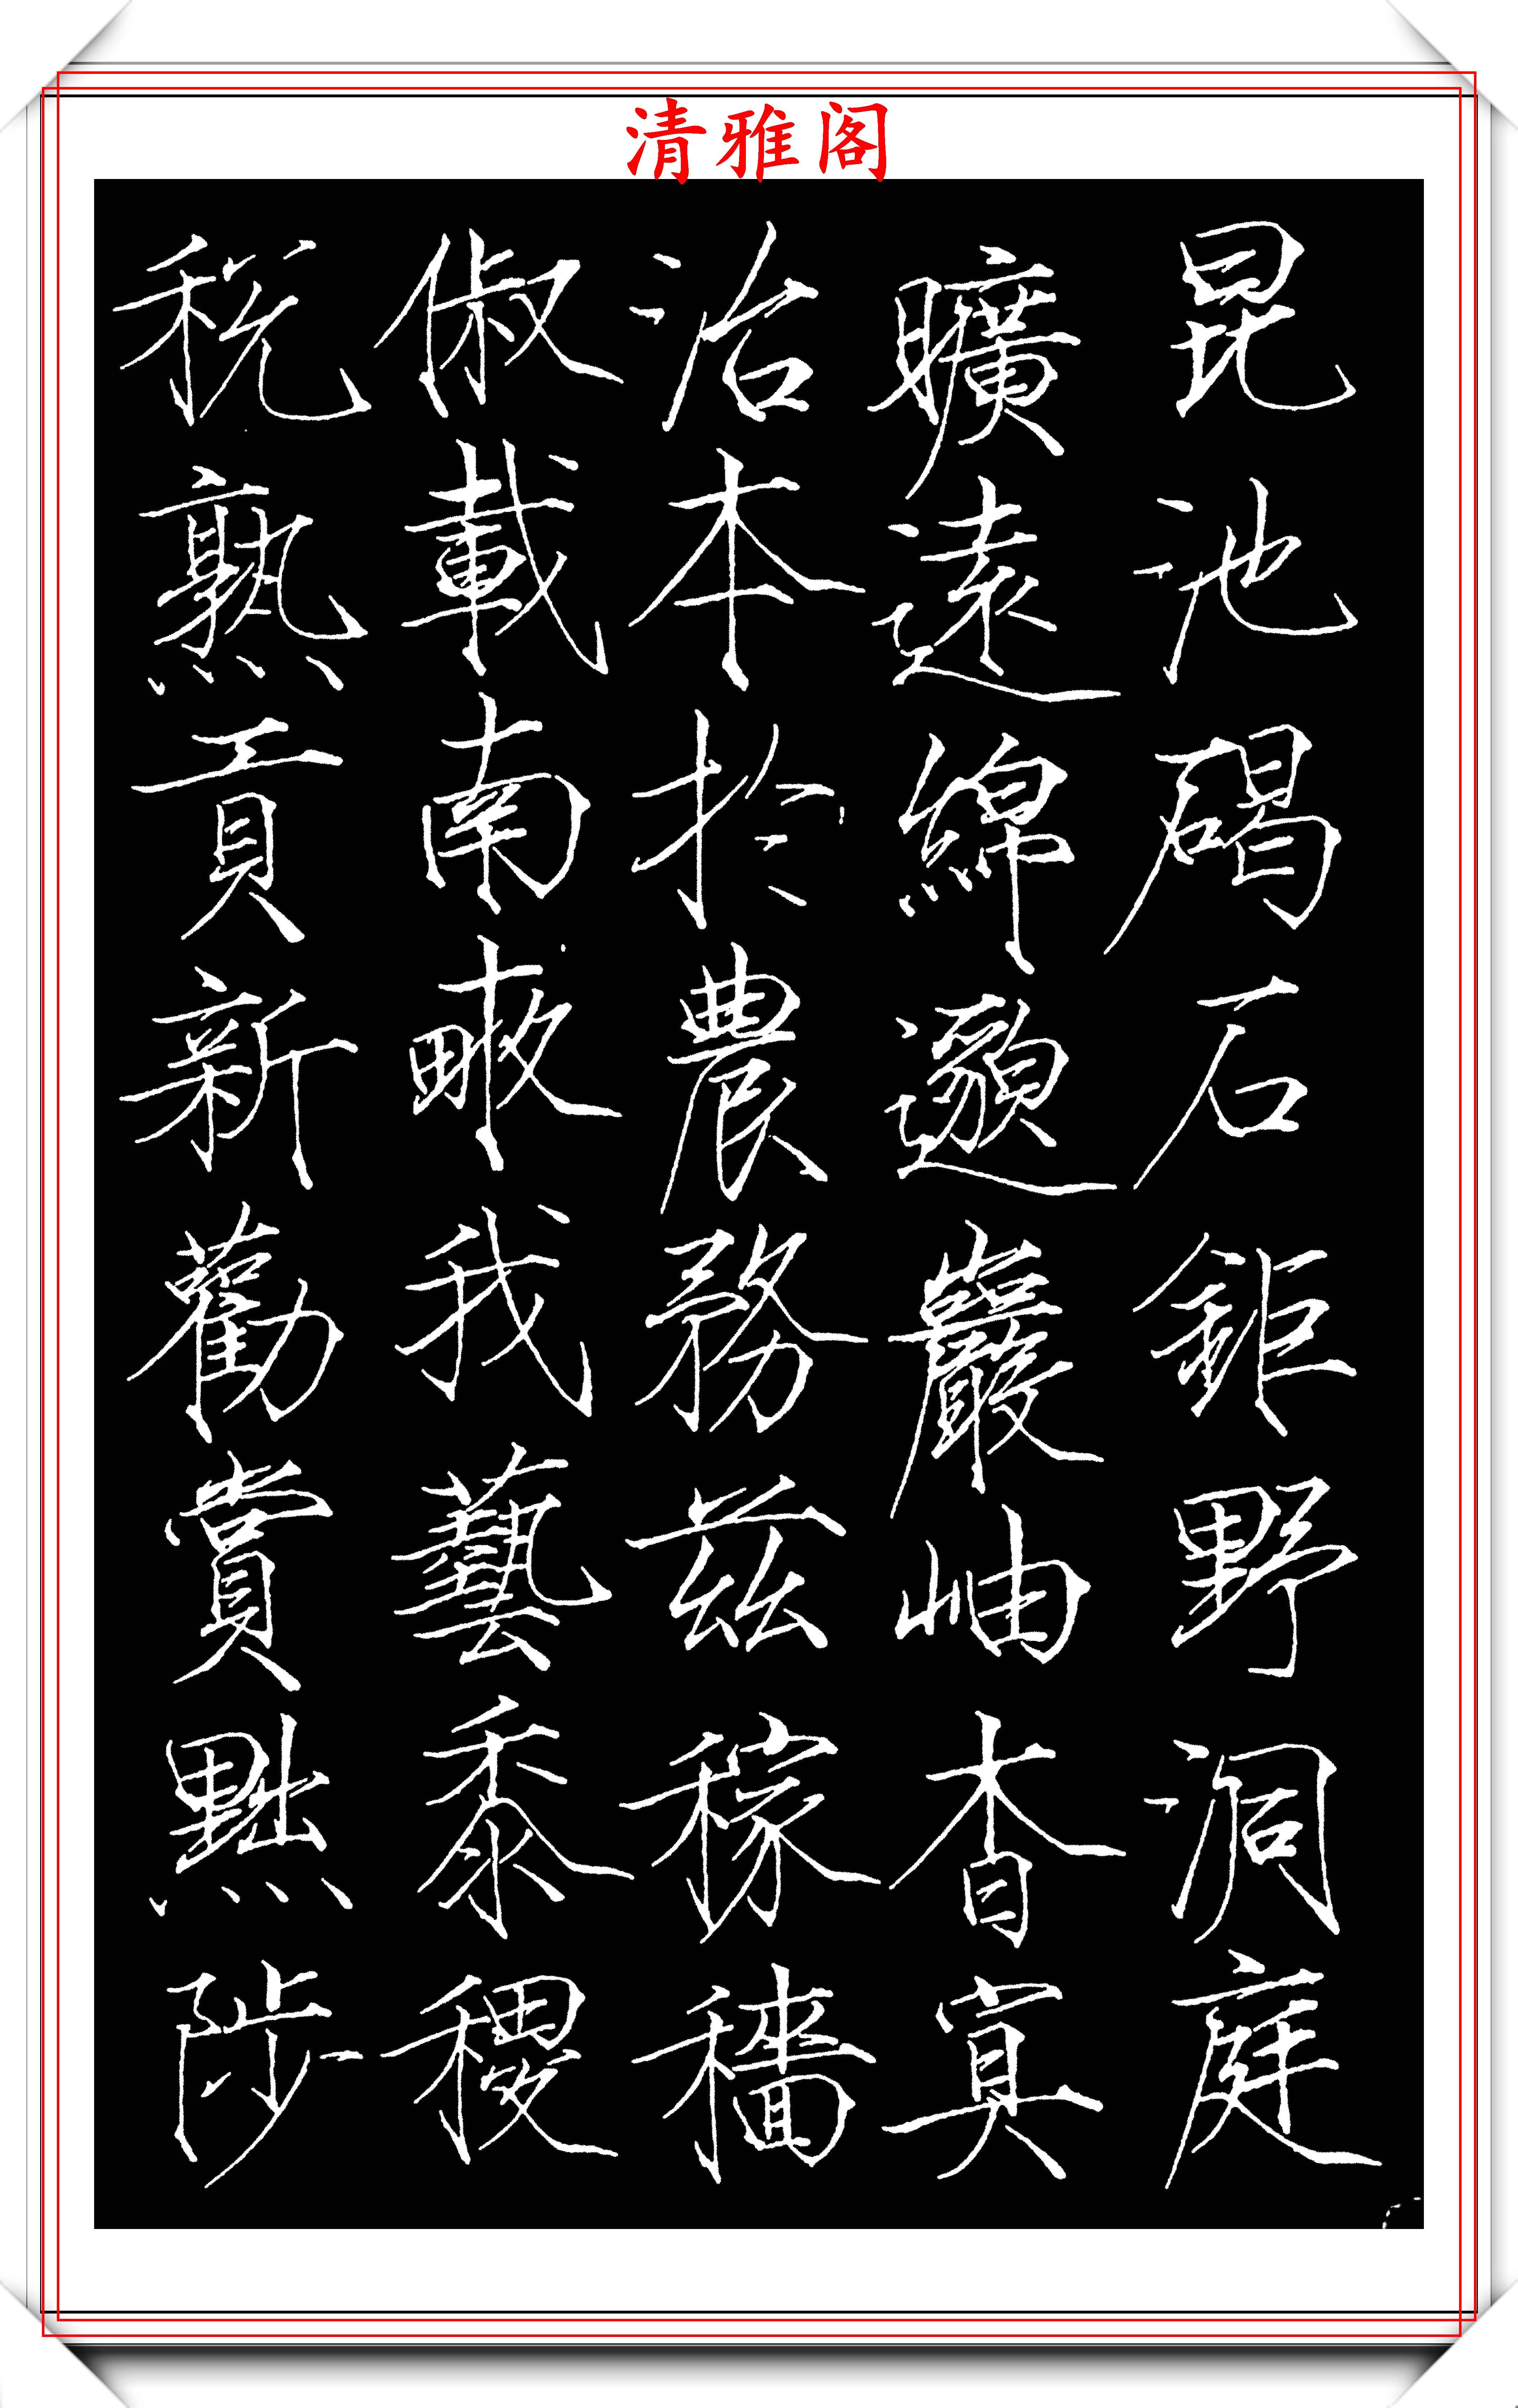 清雅阁
昆池碣石鉅野洞庭
曠遠綿邈巖岫杳冥
治本於農務茲稼穡
俶載南畝我藝黍稷
稅熟貢新勸賞黜陟